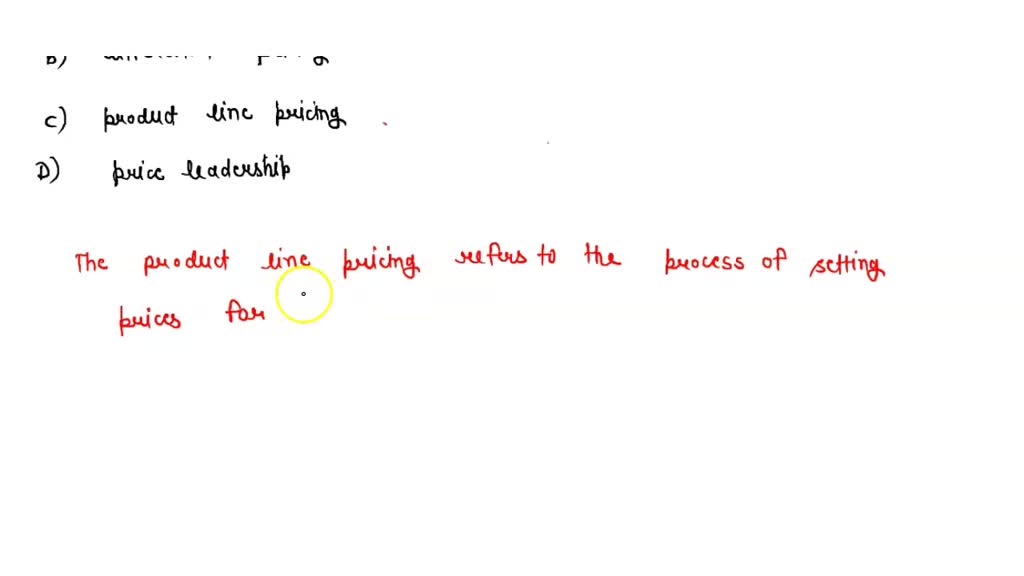 B)
C) product line pricing .
D) price leadership
The product line pricing refers to the process of setting
prices for